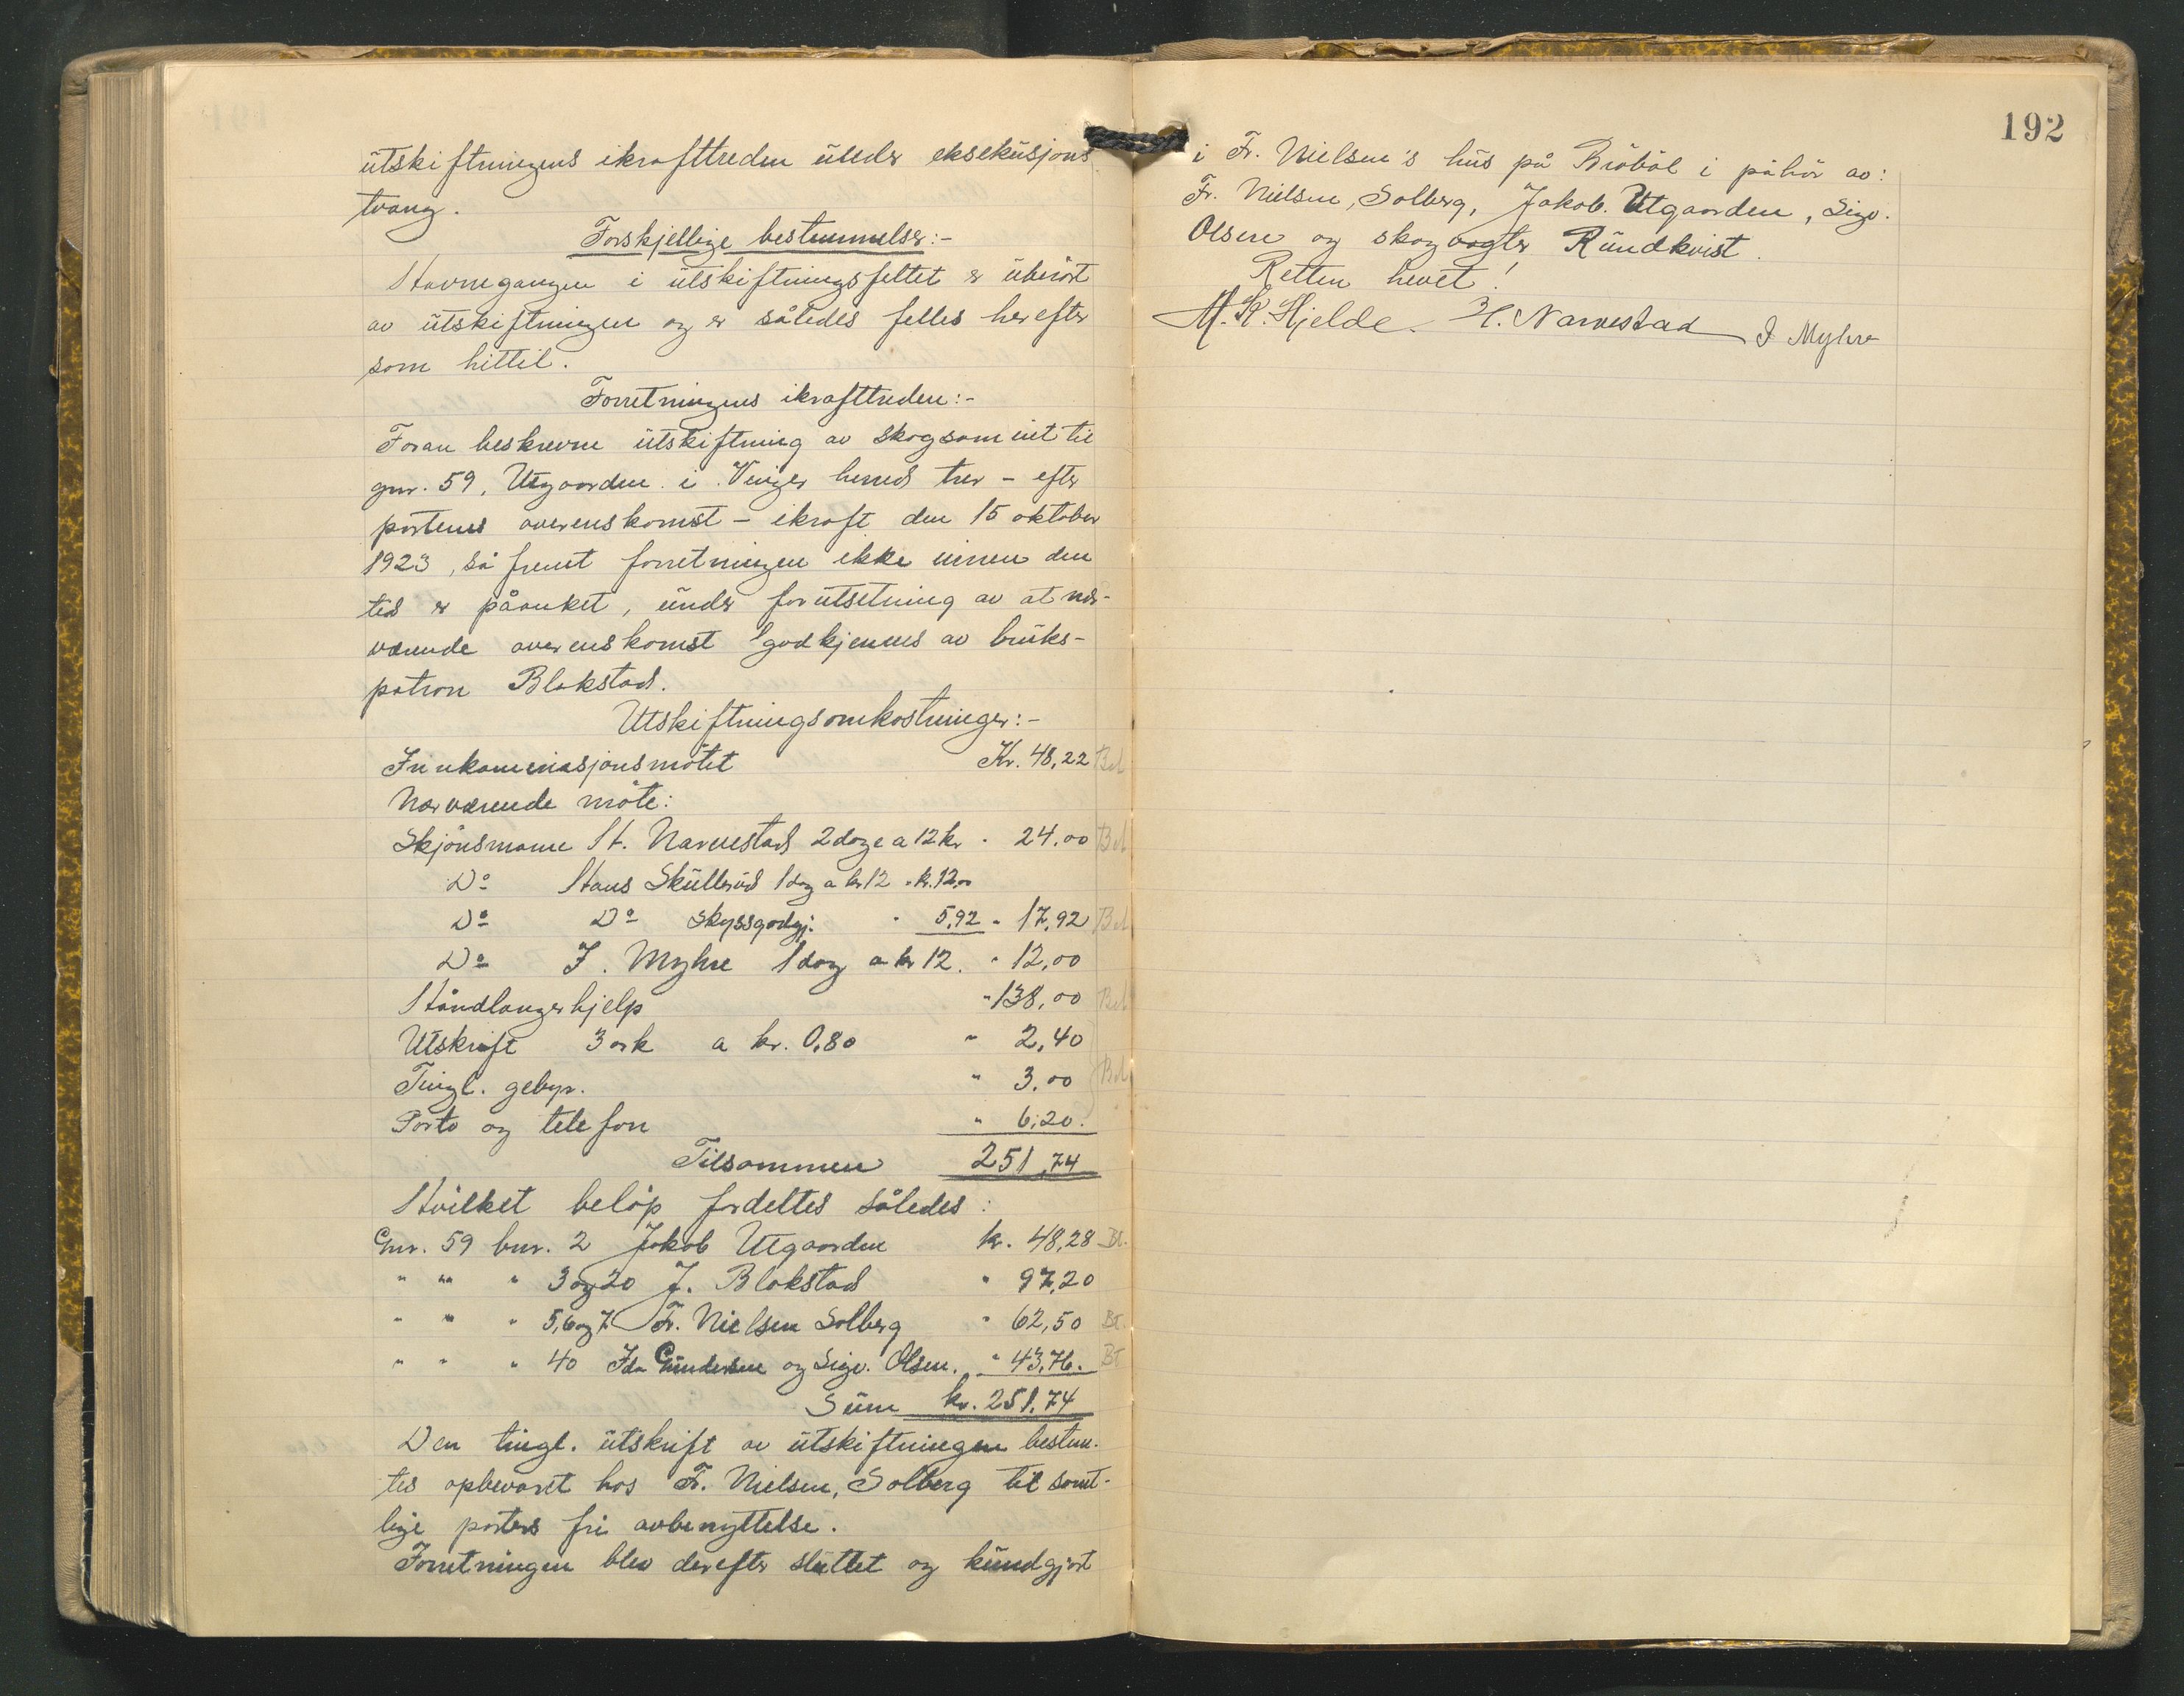 utskiftningens ikrafttreden under eksekusjons
tvang.
Forskjellige bestemmelser:-
Havnegangen i utskiftningsfeltet er uberört
av utskiftningen og er således felles herefter
som hittil.
Forretningens ikrafttreden:-
Foran beskrevne utskiftning av skog som int til
gnr. 59, Utgaarden i Vinger herred trer - efter
partenes overenskomst - ikraft den 15 oktober
1923, så fremt forretningen ikke innen den
tid er påanket, under forutsetning av at nær-
værende overenskomst godkjennes av bruks-
patron Blakstad.
Utskiftningsomkostninger:-
Innkaminasjonsmötet Kr. 48,22 Bet
Nærværende möte:
Skjönsmann H. Narvestad 2 dage a 12 kr " 24.00 Bet
Do Hans Skullerud 1 dag a kr 12 " kr. 12,00
Do Do Skyssgodtgj. " 5,92 " 17,92 Bet
Do J. Myhre 1 dag a kr 12. " 12,00
Håndlangerhjelp " 138,00 Bet
Utskrift 3 ark a kr. 0,80 " 2,40
Tingl. gebyr. " 3.00 Bet
Porto og telefon " 6,20.
Tilsammen 251,74
Hvilket belöp fordeltes således:
Gnr. 59 bnr. 2 Jakob Utgaarden kr. 48,28 Bt.
" " " 3 og 20 J. Blakstad " 97,20
" " " 5,6 og 7 Fr. Nielsen Solberg " 62,50 Bt.
" " " 40 Ida Gundersen og Sigv. Olsen. " 43,76. Bt
Sum kr. 251,74
Den tingl. utskrift av utskiftningen bestem-
tes opbevaret hos Fr. Nielsen, Solberg til samt-
lige parters fri avbenyttelse.
Forretningen blev derefter sluttet og kundgjort
192
i Fr. Nielsen's hus på Bröböl i påhör av:
Fr. Nielsen, Solberg, Jakob. Utgaarden, Sigv.
Olsen og skogvogter Rundkvist.
Retten hevet!
M. K. Hjelde. H. Narvestad J Myhre